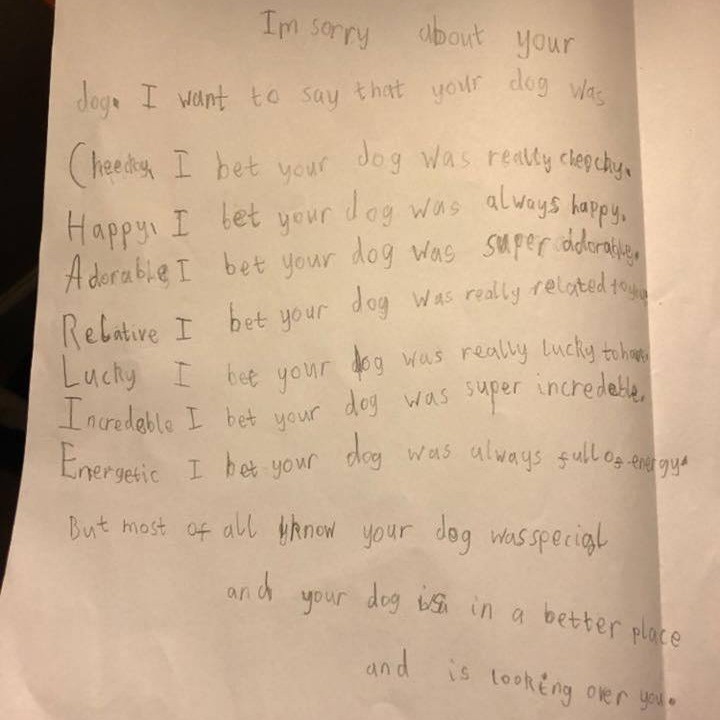 Im sorry about your
dog. I want to say that your dog was
Cheecky, I bet your dog was really cheecky.
Happy, I bet your dog was always happy.
Adorable I bet your dog was super adorable.
Relative I bet your dog was really related to you
Lucky I bet your dog was really lucky to have
Incredeble I bet your dog was super incredeble.
Energetic I bet your dog was always full of energy.
But most of all I know your dog was special
and your dog is in a better place
and is looking over you.